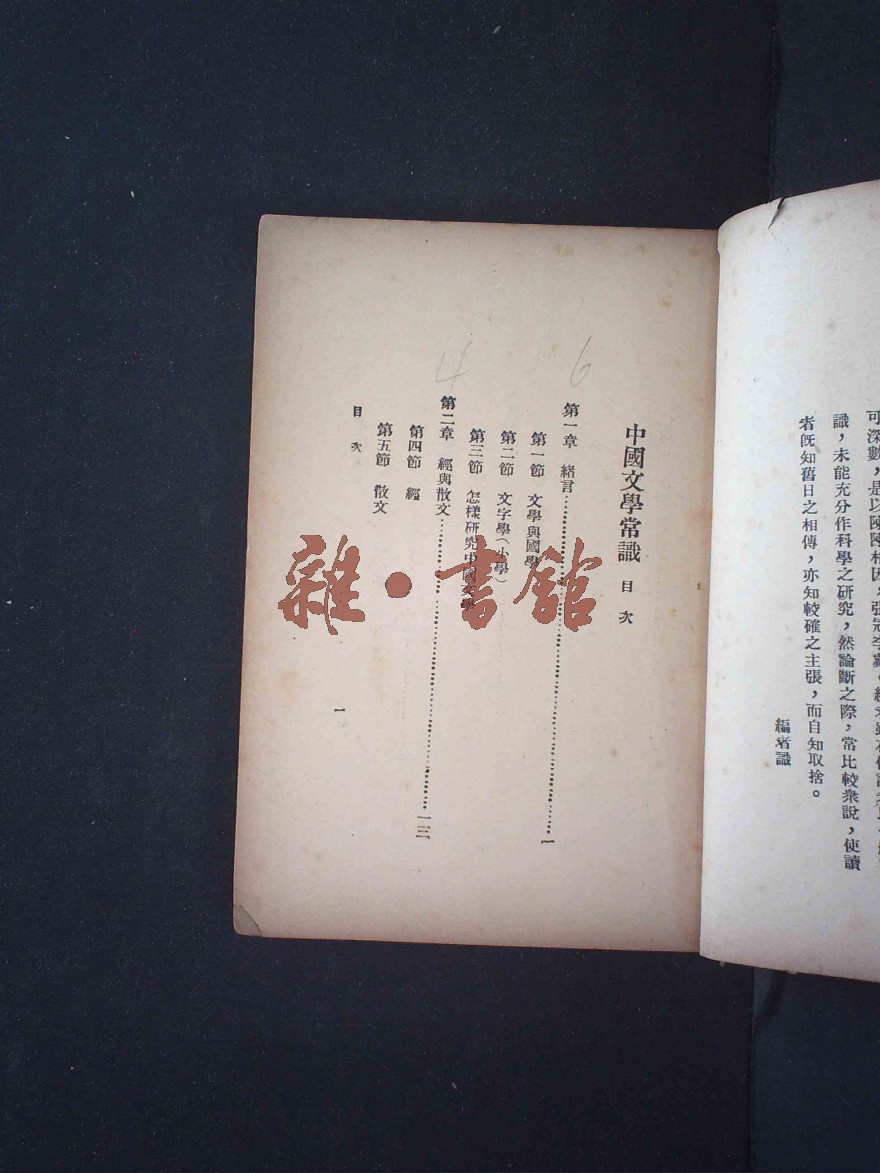 識,未能充分作科學之研究,然論斷之際,常比較衆說,使讀
者旣知舊日之相傳,亦知較確之主張,而自知取捨。
編者識
中國文學常識 目次
第一章 緒言……一
第一節 文學與國學
第二節 文字學(小學)
第三節 怎樣研究中國文學
第二章 經與散文……一三
第四節 經
第五節 散文
目次
一
6
4
雜·書館